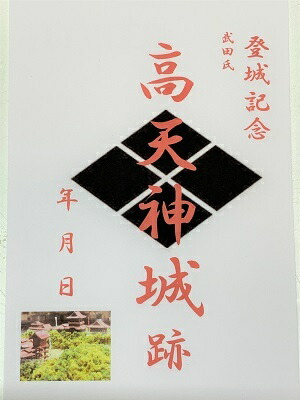 登城記念
武田氏
高天神城跡
年月日